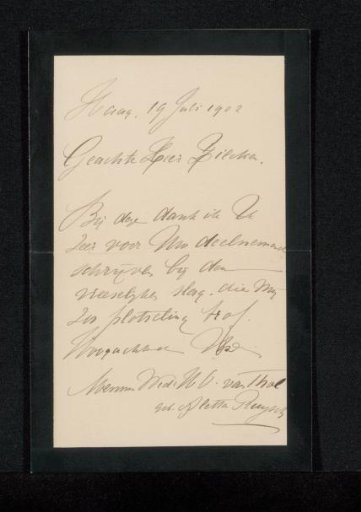 Haag, 19 Juli 1902
Geachte Heer Zilcken.
Bij deze dank ik U
Zeer voor Uw deelnemend
schrijven bij den
vreeselijken slag, die mij
Zoo plotseling trof.
Hoogachtend
Mevrouw Wed: H. O. van Thol
geb. Aletta Ruysch